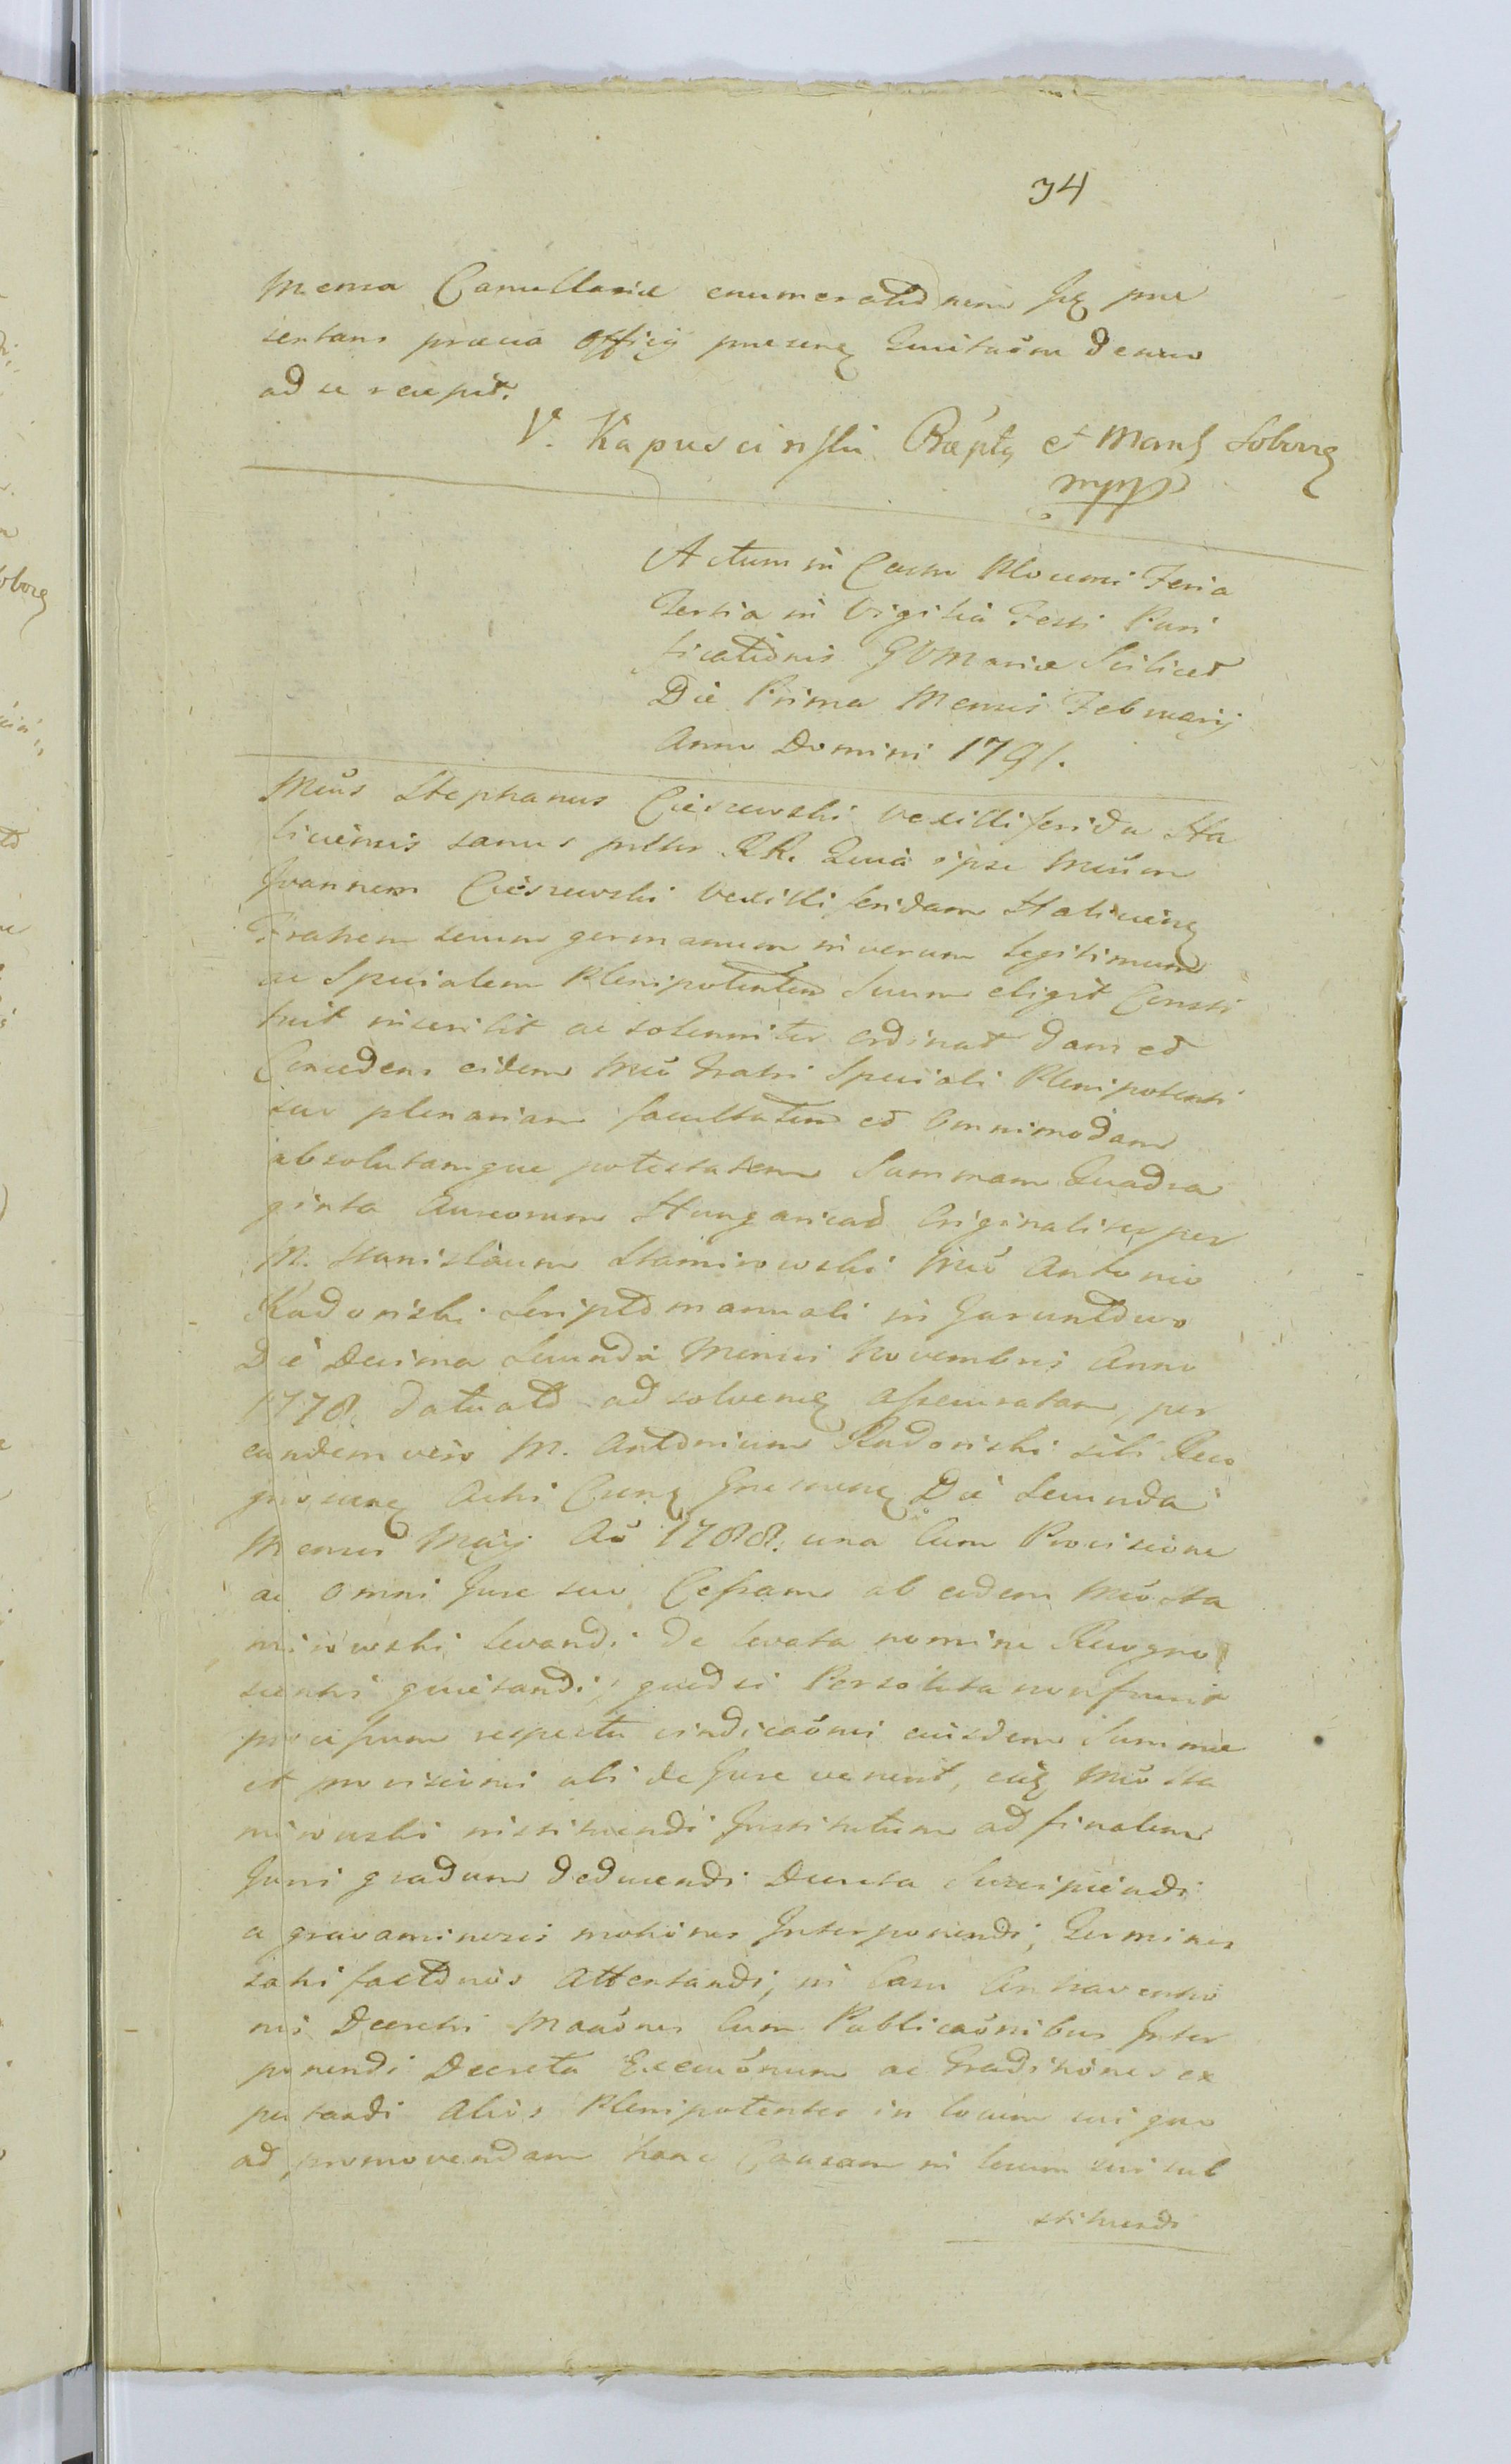 34
Mensa Cancellariæ enumerationem Jdq prae
sentans prævia Officij præsenq Quitaõne denuo
ad se recepit.
V. Kapuscinski Præptq et Manq Soborq
mpp
Actum in Castro Plocensi Feria
Tertia in Vigilia Festi Puri
ficationis BVMariæ Scilicet
Die Prima Mensis Februarij
Anno Domini 1791.
Mcus Stephanus Cieszewski Vexilliferida Ha
liciensis sanus pntter RR. Quia ipse Mcum
Joannem Cieszewski Vexilliferidam Halicienq
Fratrem suum germanum in verum Legitimum
ac Specialem Plenipotentem Suum eligit Consti
tuit inscribit ac solenniter ordinat dans et
Concedens eidem Mco Fratri Speciali Plenipotenti
suo plenariam facultatem et omnimodam
absolutamque potestatem Summam Quadra
ginta Aureorum Hungarical Originaliter per
M. Stanislaum Stamirowski Mco Antonio
Kadonski Scripto manuali in
Die Decima Secunda Mensis Novembris Anno
1778. datuato ad solvenq assecuratam, per
eundem vero M. Antonium Kadonski sibi Reco
gnoscenq Actis
Die Secunda
Mensis Maij Aõ 1788. una Cum Provisione
ac omni Jure suo Cessam ab eodem Mco Sta
mirowski levandi de levata nomine Recogno
scentis quietandi, quodsi Persoluta non fuerit
processum respectu vindicaõnis eiusdem Summæ
et provisionis ubi de Jure venerit, cuq Mco Sta
mirowski instituendi Institutum ad finalem
Juris gradum deducendi Decreta Suscipiendi
a gravaminosis motiones Interponendi, Termines
satisfactionis Attentandi, in Casu Contravenio
nis Decretis Maõnes Cum Publicaõnibus Inter
ponendi Decreta Execuõnum ac Traditiones ex
pectandi Alios Plenipotentes in locum sui quo
ad promovendam hanc Causam in locum sui sub
stituendi